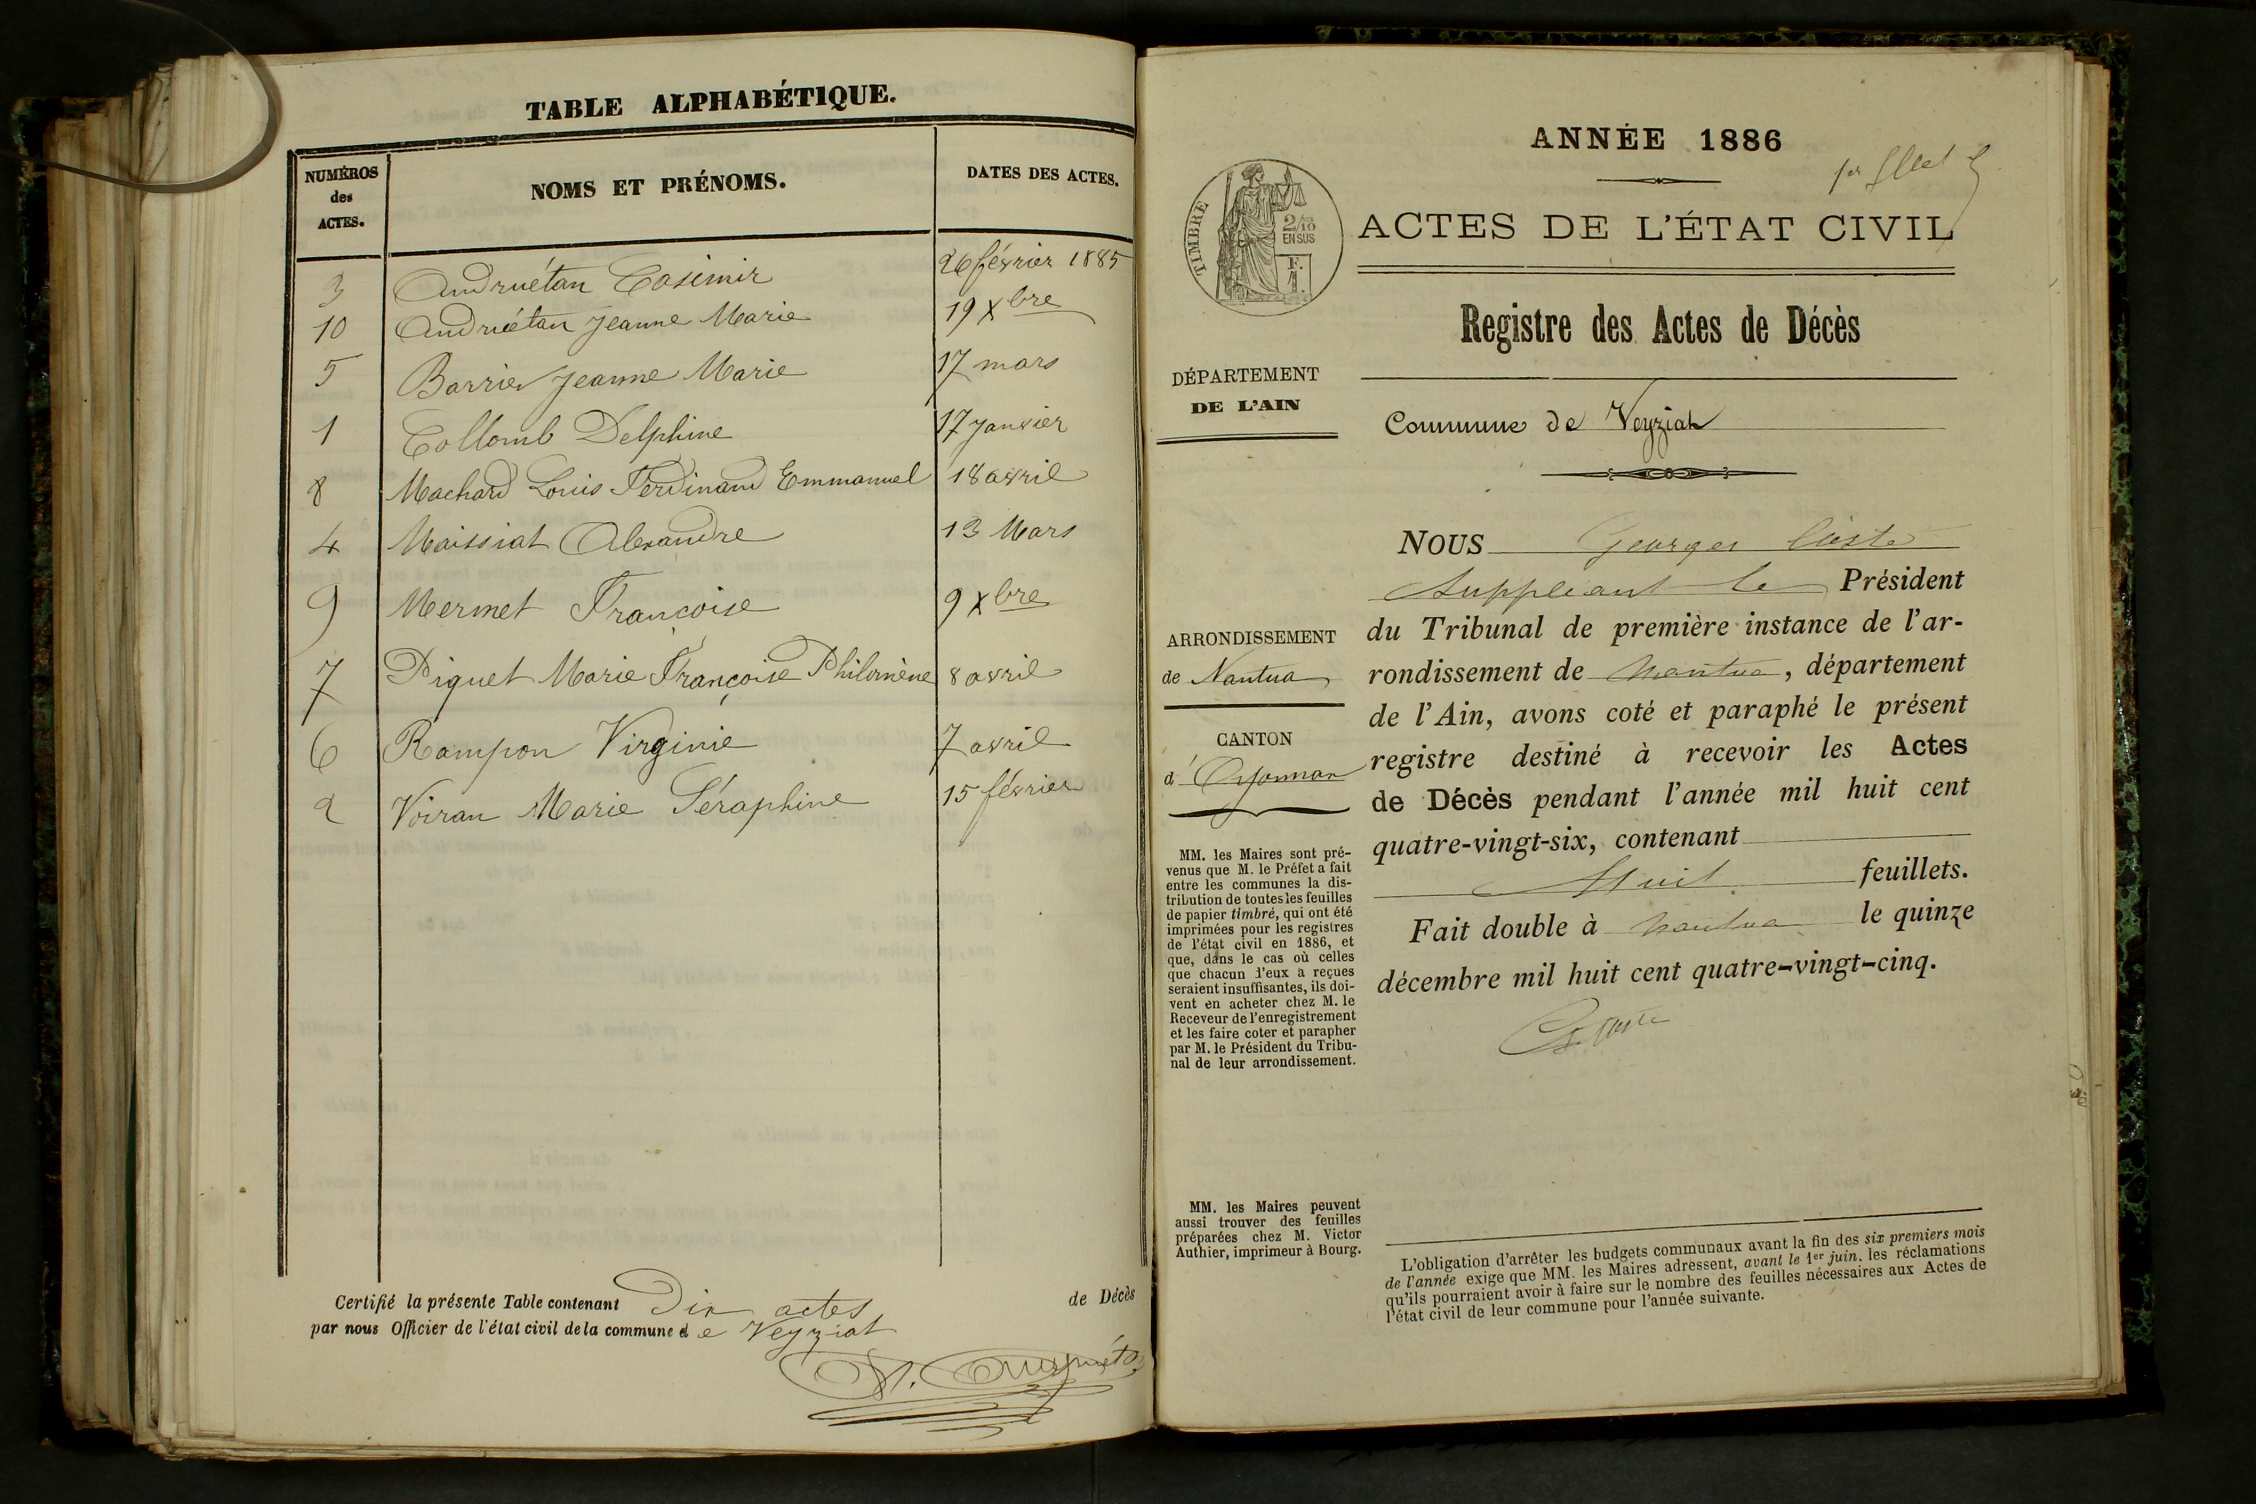 TABLE ALPHABÉTIQUE.
NUMÉROS des ACTES. NOMS ET PRÉNOMS. DATES DES ACTES.
3 Andruétan Casimir 26 février 1885
10 Andruétan Jeanne Marie 19 Xbre
5 Barrier Jeanne Marie 17 mars
1 Collomb Delphine 17 Janvier
8 Machard Louis Ferdinand Emmanuel 18 avril
4 Maissiat Alexandre 13 Mars
9 Mermet Françoise 9 Xbre
7 Piquet Marie Françoise Philomène 8 avril
6 Rampon Virginie 7 avril
2 Voiran Marie Séraphine 15 février
Certifié la présente Table contenant Dix actes de Décès
par nous Officier de l'état civil de la commune de Veyziat
ANNÉE 1886
TIMBRE
2/10
EN SUS
F.
1.
ACTES DE L'ÉTAT CIVIL
Registre des Actes de Décès
DÉPARTEMENT
DE L'AIN
Commune de Veyziat
NOUS Georges
suppléant le Président
du Tribunal de première instance de l'ar-
rondissement de Nantua, département
de l'Ain, avons coté et paraphé le présent
registre destiné à recevoir les Actes
de Décès pendant l'année mil huit cent
quatre-vingt-six, contenant
Huit feuillets.
Fait double à Nantua le quinze
décembre mil huit cent quatre-vingt-cinq.
ARRONDISSEMENT
de Nantua
CANTON
d'Oyonnax
MM. les Maires sont pré-
venus que M. le Préfet a fait
entre les communes la dis-
tribution de toutes les feuilles
de papier timbré, qui ont été
imprimées pour les registres
de l'état civil en 1886, et
que, dans le cas où celles
que chacun d'eux a reçues
seraient insuffisantes, ils doi-
vent en acheter chez M. le
Receveur de l'enregistrement
et les faire coter et parapher
par M. le Président du Tribu-
nal de leur arrondissement.
MM. les Maires peuvent
aussi trouver des feuilles
préparées chez M. Victor
Authier, imprimeur à Bourg.
L'obligation d'arrêter les budgets communaux avant la fin des six premiers mois
de l'année exige que MM. les Maires adressent, avant le 1er juin, les réclamations
qu'ils pourraient avoir à faire sur le nombre des feuilles nécessaires aux Actes de
l'état civil de leur commune pour l'année suivante.